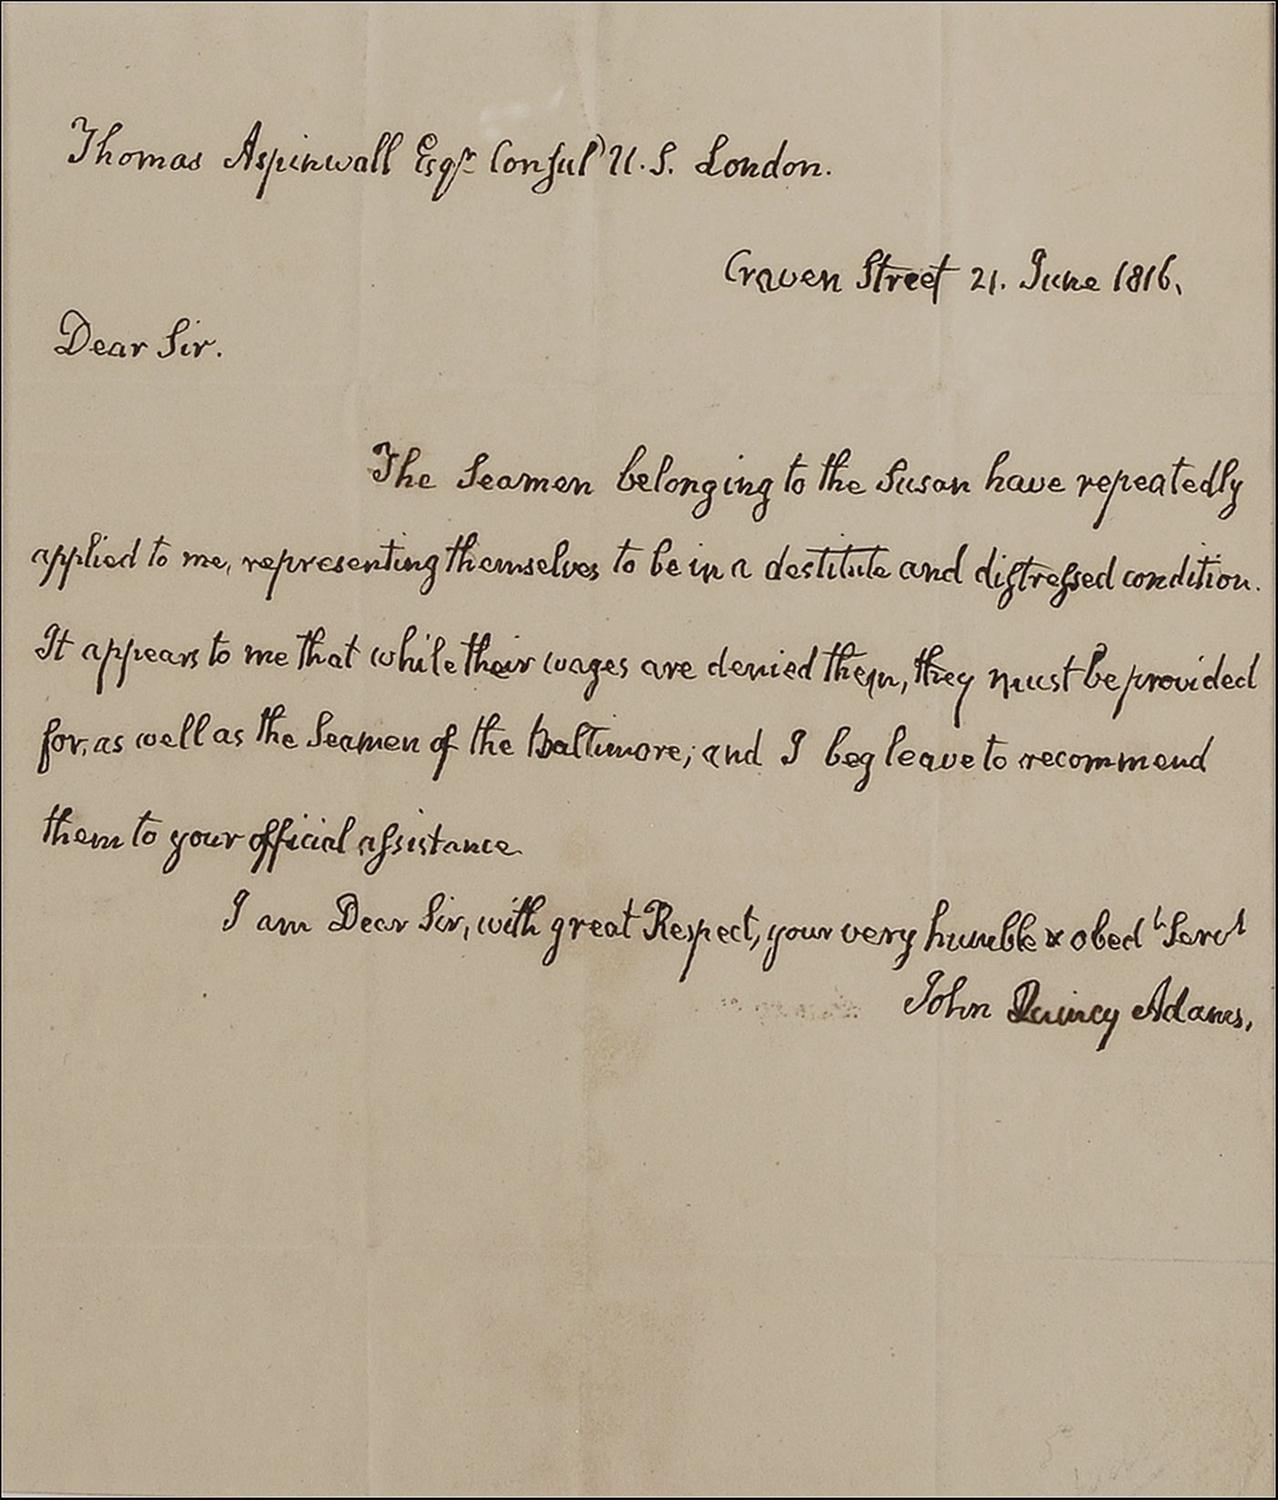 Thomas Aspinwall Esqr. Consul U.S. London.
Craven Street 21. June 1816.
Dear Sir.
The Seamen belonging to the Susan have repeatedly
applied to me, representing themselves to be in a destitute and distressed condition.
It appears to me that while their wages are denied them, they must be provided
for, as well as the Seamen of the Baltimore; and I beg leave to recommend
them to your official assistance.
I am Dear Sir, with great Respect, your very humble & obedt. Servt
John Quincy Adams,